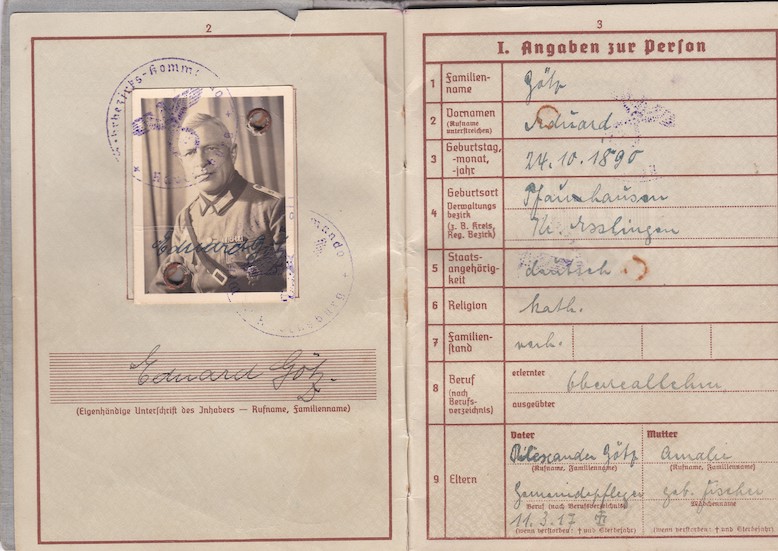 2
Eduard Götz
Eduard Götz.
(Eigenhändige Unterschrift des Inhabers — Rufname, Familienname)
3
I. Angaben zur Person
1 Familien-
name
Götz
2 Vornamen
(Rufname
unterstreichen)
Eduard.
3 Geburtstag,
-monat,
-jahr
24.10.1890
4 Geburtsort
Verwaltungs
bezirk
(z. B. Kreis,
Reg. Bezirk)
Pfauhausen
Kr. Esslingen
5 Staats-
angehörig-
keit
deutsch
6 Religion
kath.
7 Familien-
stand
verh.
8 Beruf
(nach
Berufs-
verzeichnis)
erlernter
ausgeübter
9 Eltern
Vater
Alexander Götz
(Rufname, Familienname)
Gemeindepfleger
Beruf (nach Berufsverzeichnis)
11.3.17
(wenn verstorben: † und Sterbejahr)
Mutter
Amalie
(Rufname, Familienname)
geb. Fischer
Mädchenname
(wenn verstorben: † und Sterbejahr)